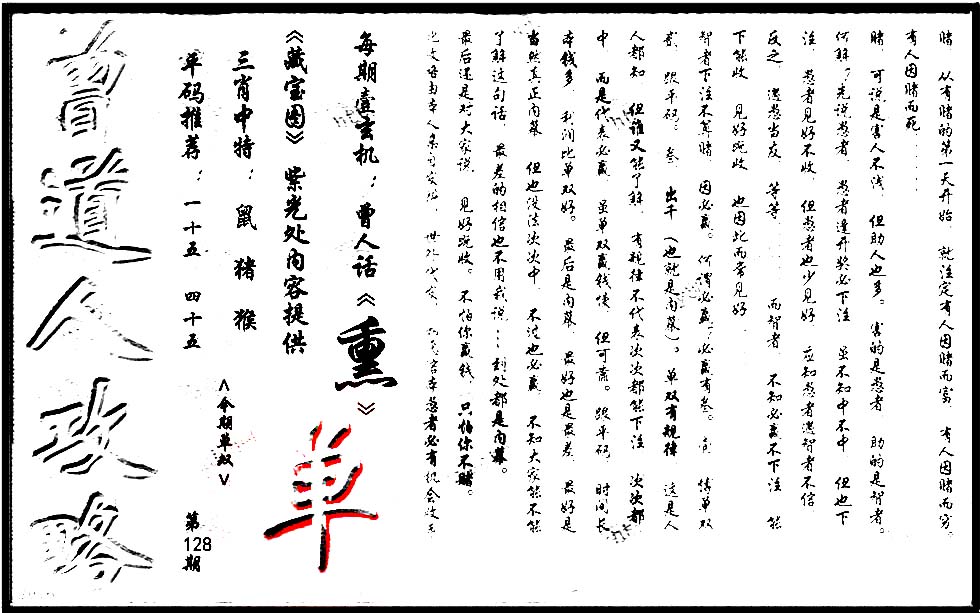 赌 从有赌的第一天开始 就注定有人因赌而富 有人因赌而穷。
有人因赌而死......
赌 可说是害人不浅 但助人也多。害的是愚者 助的是智者。
何解?先说愚者 愚者逢开奖必下注 虽不知中不中 但也下
注 愚者见好不收 但愚者也少见好 应知愚者遇智者不信
反之 遇愚当友 等等...... 而智者 不知必赢不下注 能
下能收 见好就收 也因此而常见好.
智者下注不算赌 因必赢。何谓必赢?必赢有叁。壹 猜单双
贰 跟平码。叁 出千 (也就是内幕)。单双有规律 这是人
人都知 但谁又能了解 有规律不代表次次都能下注 次次都
中 而是代表必赢 虽单双赢钱慢 但可靠。跟平码 时间长
本钱多 利润比单双好。最后是内幕 最好也是最差 最好是
当然真正内幕 但也没法次次中 不过也必赢 不知大家能不能
了解这句话 最差的相信也不用我说...到处都是内幕。
最后还是对大家说 见好就收。不怕你赢钱,只怕你不赌。
每期壹玄机:曾人话《熏》
单
《藏宝图》紫光处内容提供
三肖中特: 鼠 猪 猴
<今期单双>
平码推荐:一十五 四十五
第128期
曾道人攻略